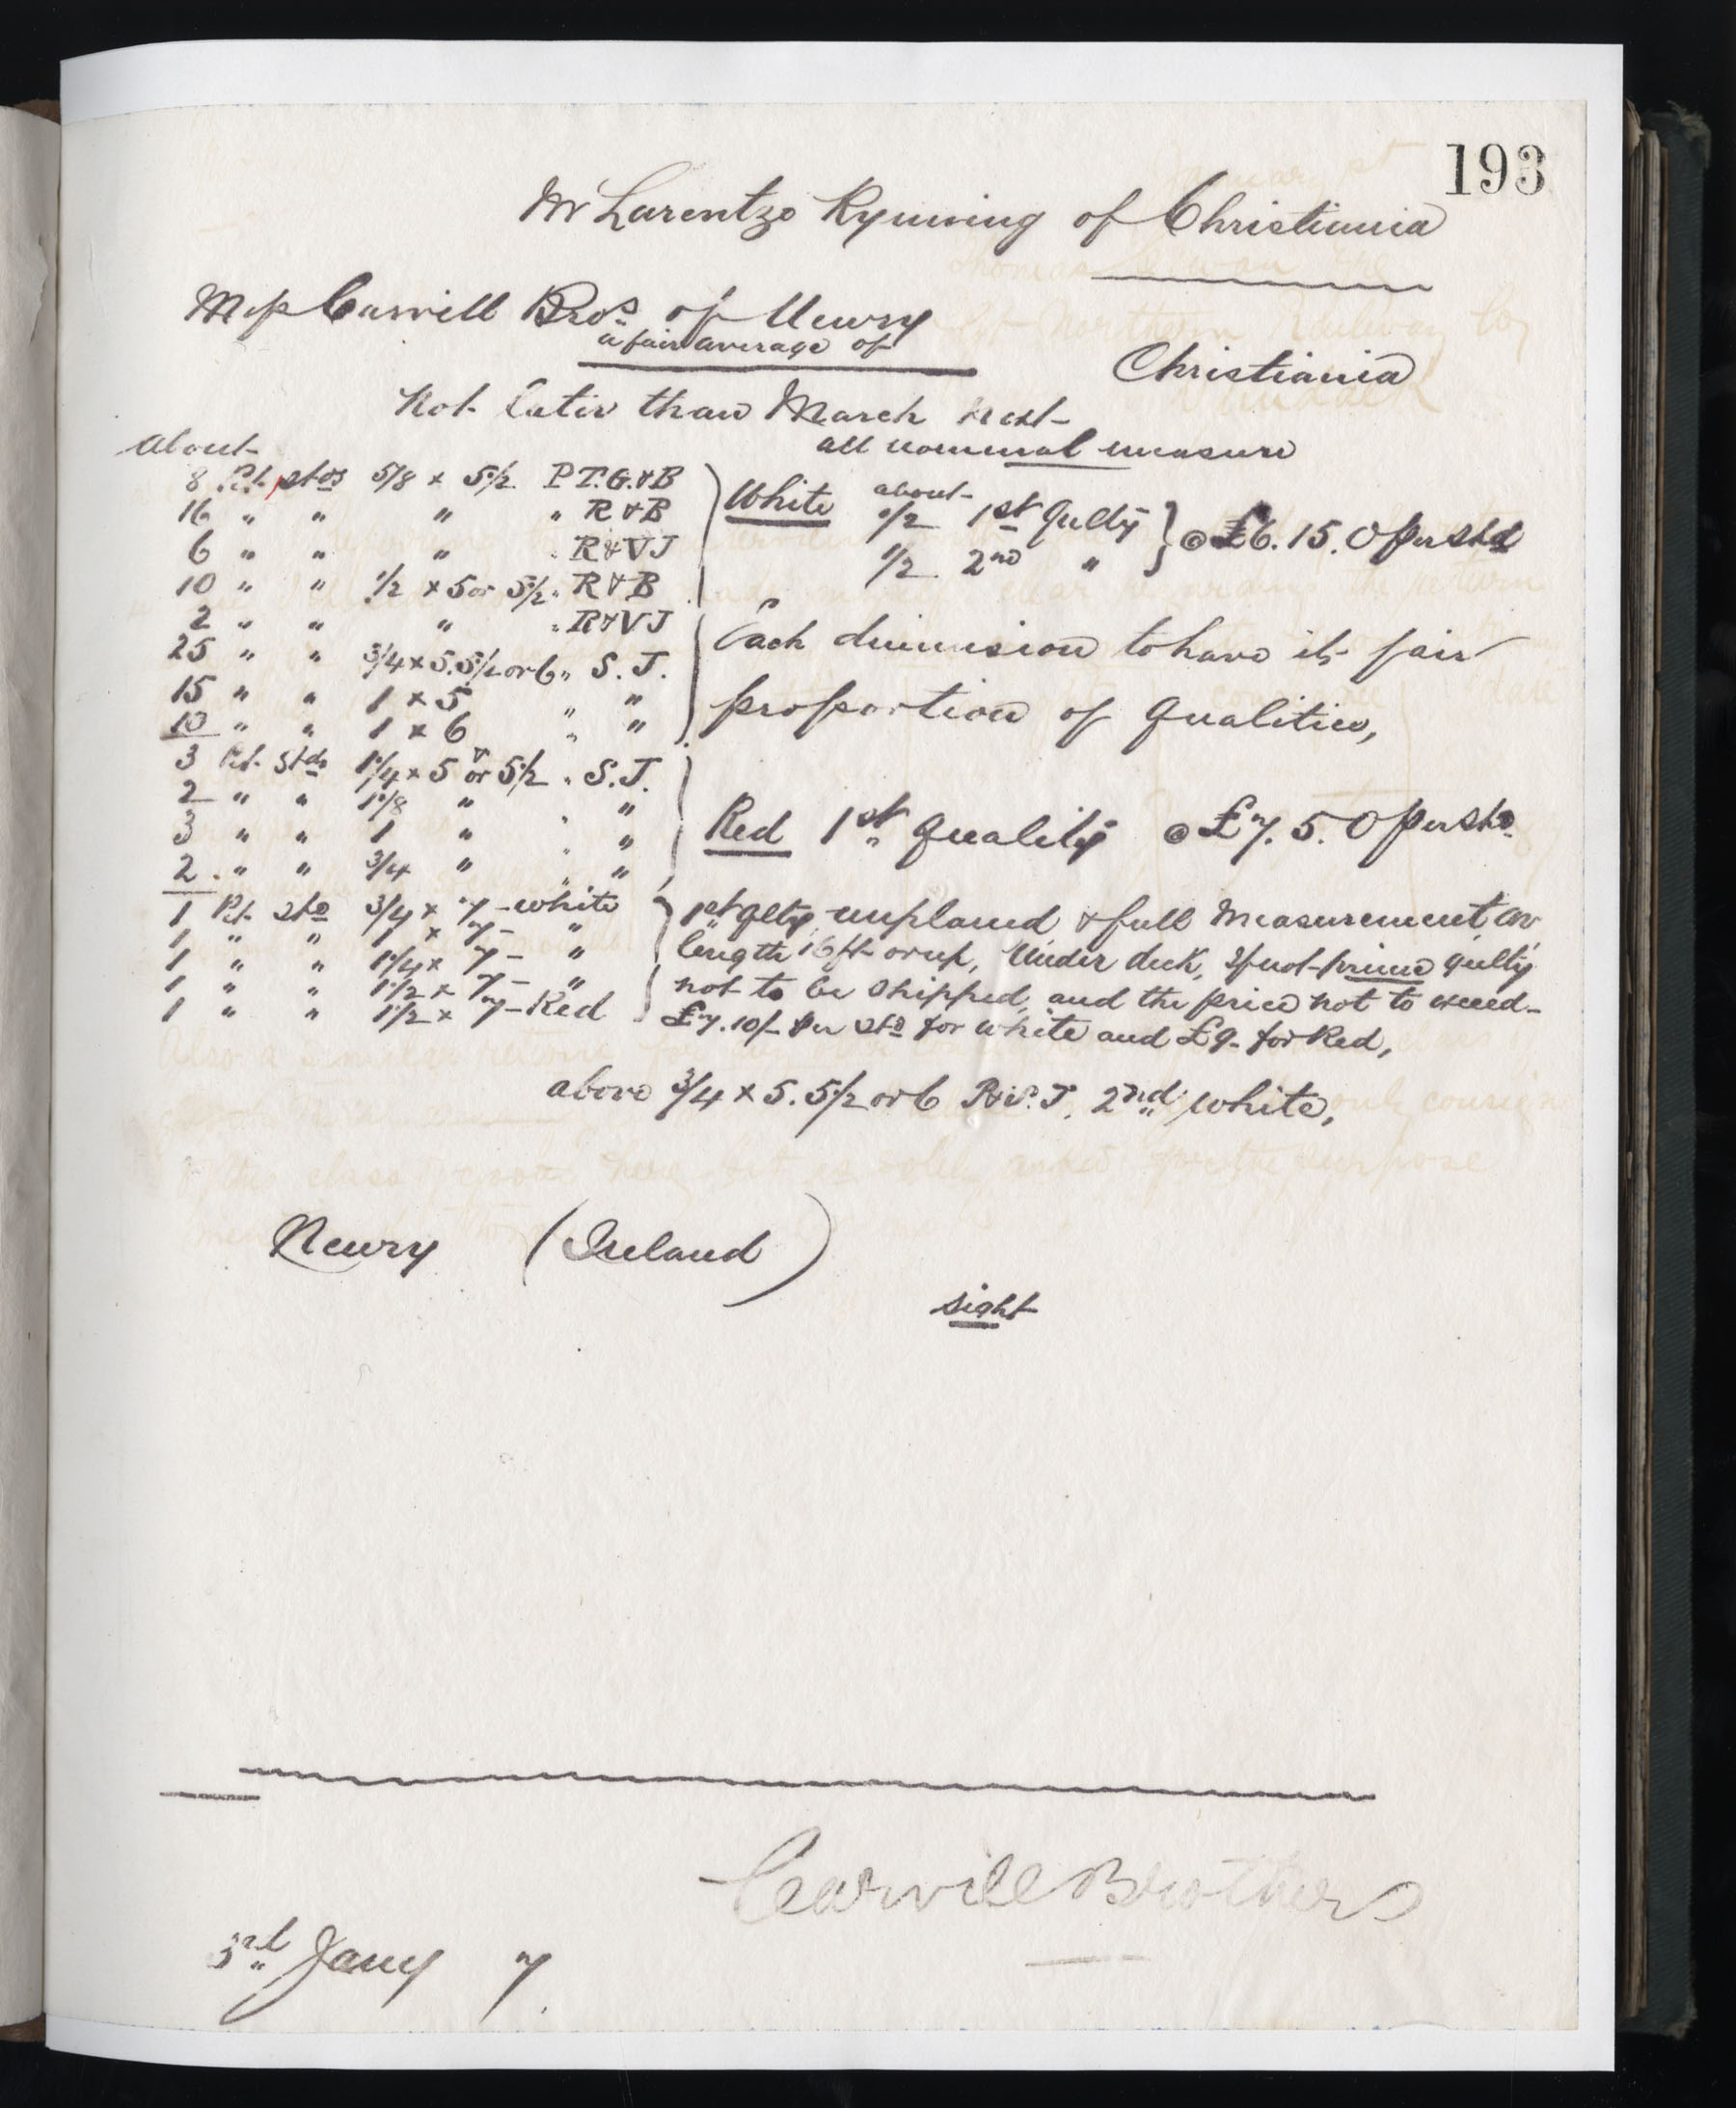 193
Mr Larentzo Rynning of Christiania
Mess Carvill Bros of Newry
a fair average of
Christiania
Not later than March next
all nominal measure
About
8 Pet. stds 5/8 x 5 1/2 P.T.G.&B
16 " " " " R&B
6 " " " " R&VJ
10 " " 1/2 x 5 or 5 1/2 " R&B
2 " " " " R&VJ
25 " " 3/4 x 5. 5 1/2 or 6 " S.J.
15 " " 1 x 5 " "
10 " " 1 x 6 " "
White about 1/2 1st Qulty
1/2 2nd "
@ £6.15.0 per std
Each dimension to have its fair
proportion of qualities,
3 Pet. Stds 1 1/4 x 5 & or 5 1/2 " S.J.
2 " " 1 1/8 " " "
3 " " 1 " " "
2 " " 3/4 " " "
Red 1st Quality @ £7.5.0 per std
1 Pet. std 3/4 x 7 - white
1 " " 1 x 7 - "
1 " " 1 1/4 x 7 - "
1 " " 1 1/2 x 7 - "
1 " " 1 1/2 x 7 - Red
1st qlty unplaned & full measurement av
length 16 ft or up, Under deck, If not prime qulty
not to be shipped, and the price not to exceed
£7.10/- per std for white and £9- for Red,
above 3/4 x 5. 5 1/2 or 6 2nd white,
Newry (Ireland)
sight
Carvill Brothers
3rd Jany 7.